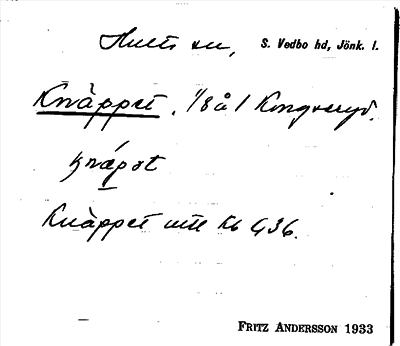 Hults sn, S. Vedbo hd, Jönk. l.
Knäppet, 1/8 å 1 Kongseryd.
knápat
Knäppet utt Kb 436.
FRITZ ANDERSSON 1933